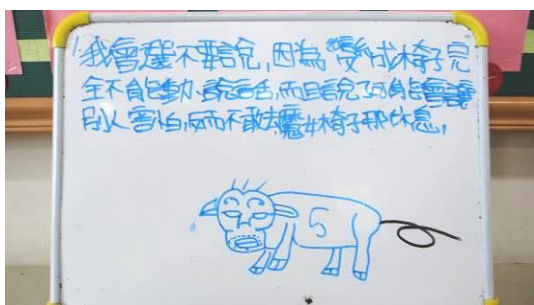 1.我會選不要說,因為變成椅子完
全不能動、說話,而且說了可能會讓
別人害怕,反而不敢去魔女椅子那休息,
5